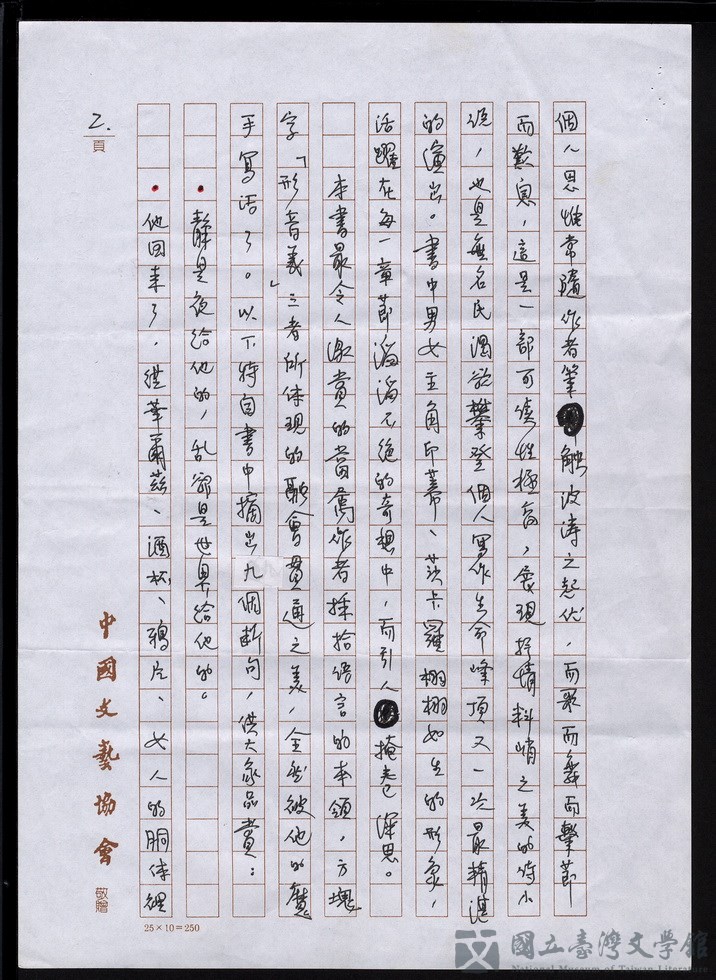 個人思惟常隨作者筆触波涛之起伏，而歌而舞而擊節
而歎息，這是一部可讀性極高，展現抒情料峭之美的詩小
說，也是無名民濁欲攀登個人寫作生命峰頂又一次最精湛
的演出。書中男女主角印蒂、莎卡羅栩栩如生的形象，
活躍在每一章節滔滔不絕的奇想中，而引人掩卷深思。
本書最令人激賞的當屬作者採拾語言的本領，方塊
字「形音義」三者所体現的融會貫通之美，全然被他的魔
手寫活了。以下特自書中摘出九個斷句，供大家品賞：
•靜是夜給他的，乱命是世界給他的。
•他回來了，從華爾茲、酒杯、鴉片、女人的胴体裡
2.頁
中國文藝協會 敬贈
25×10=250
國立臺灣文學館
National Museum of Taiwan Literature